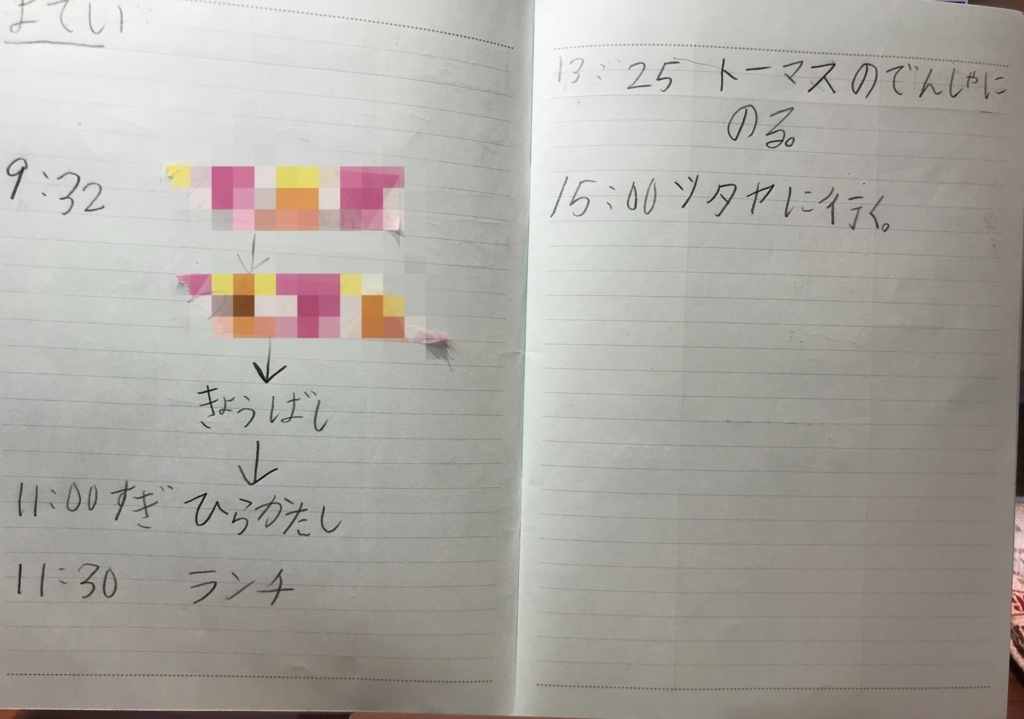 よてい
9:32
↓
↓
きょうばし
↓
11:00すぎ ひらかたし
11:30 ランチ
13:25 トーマスのでんしゃに
のる。
15:00 ツタヤに行く。